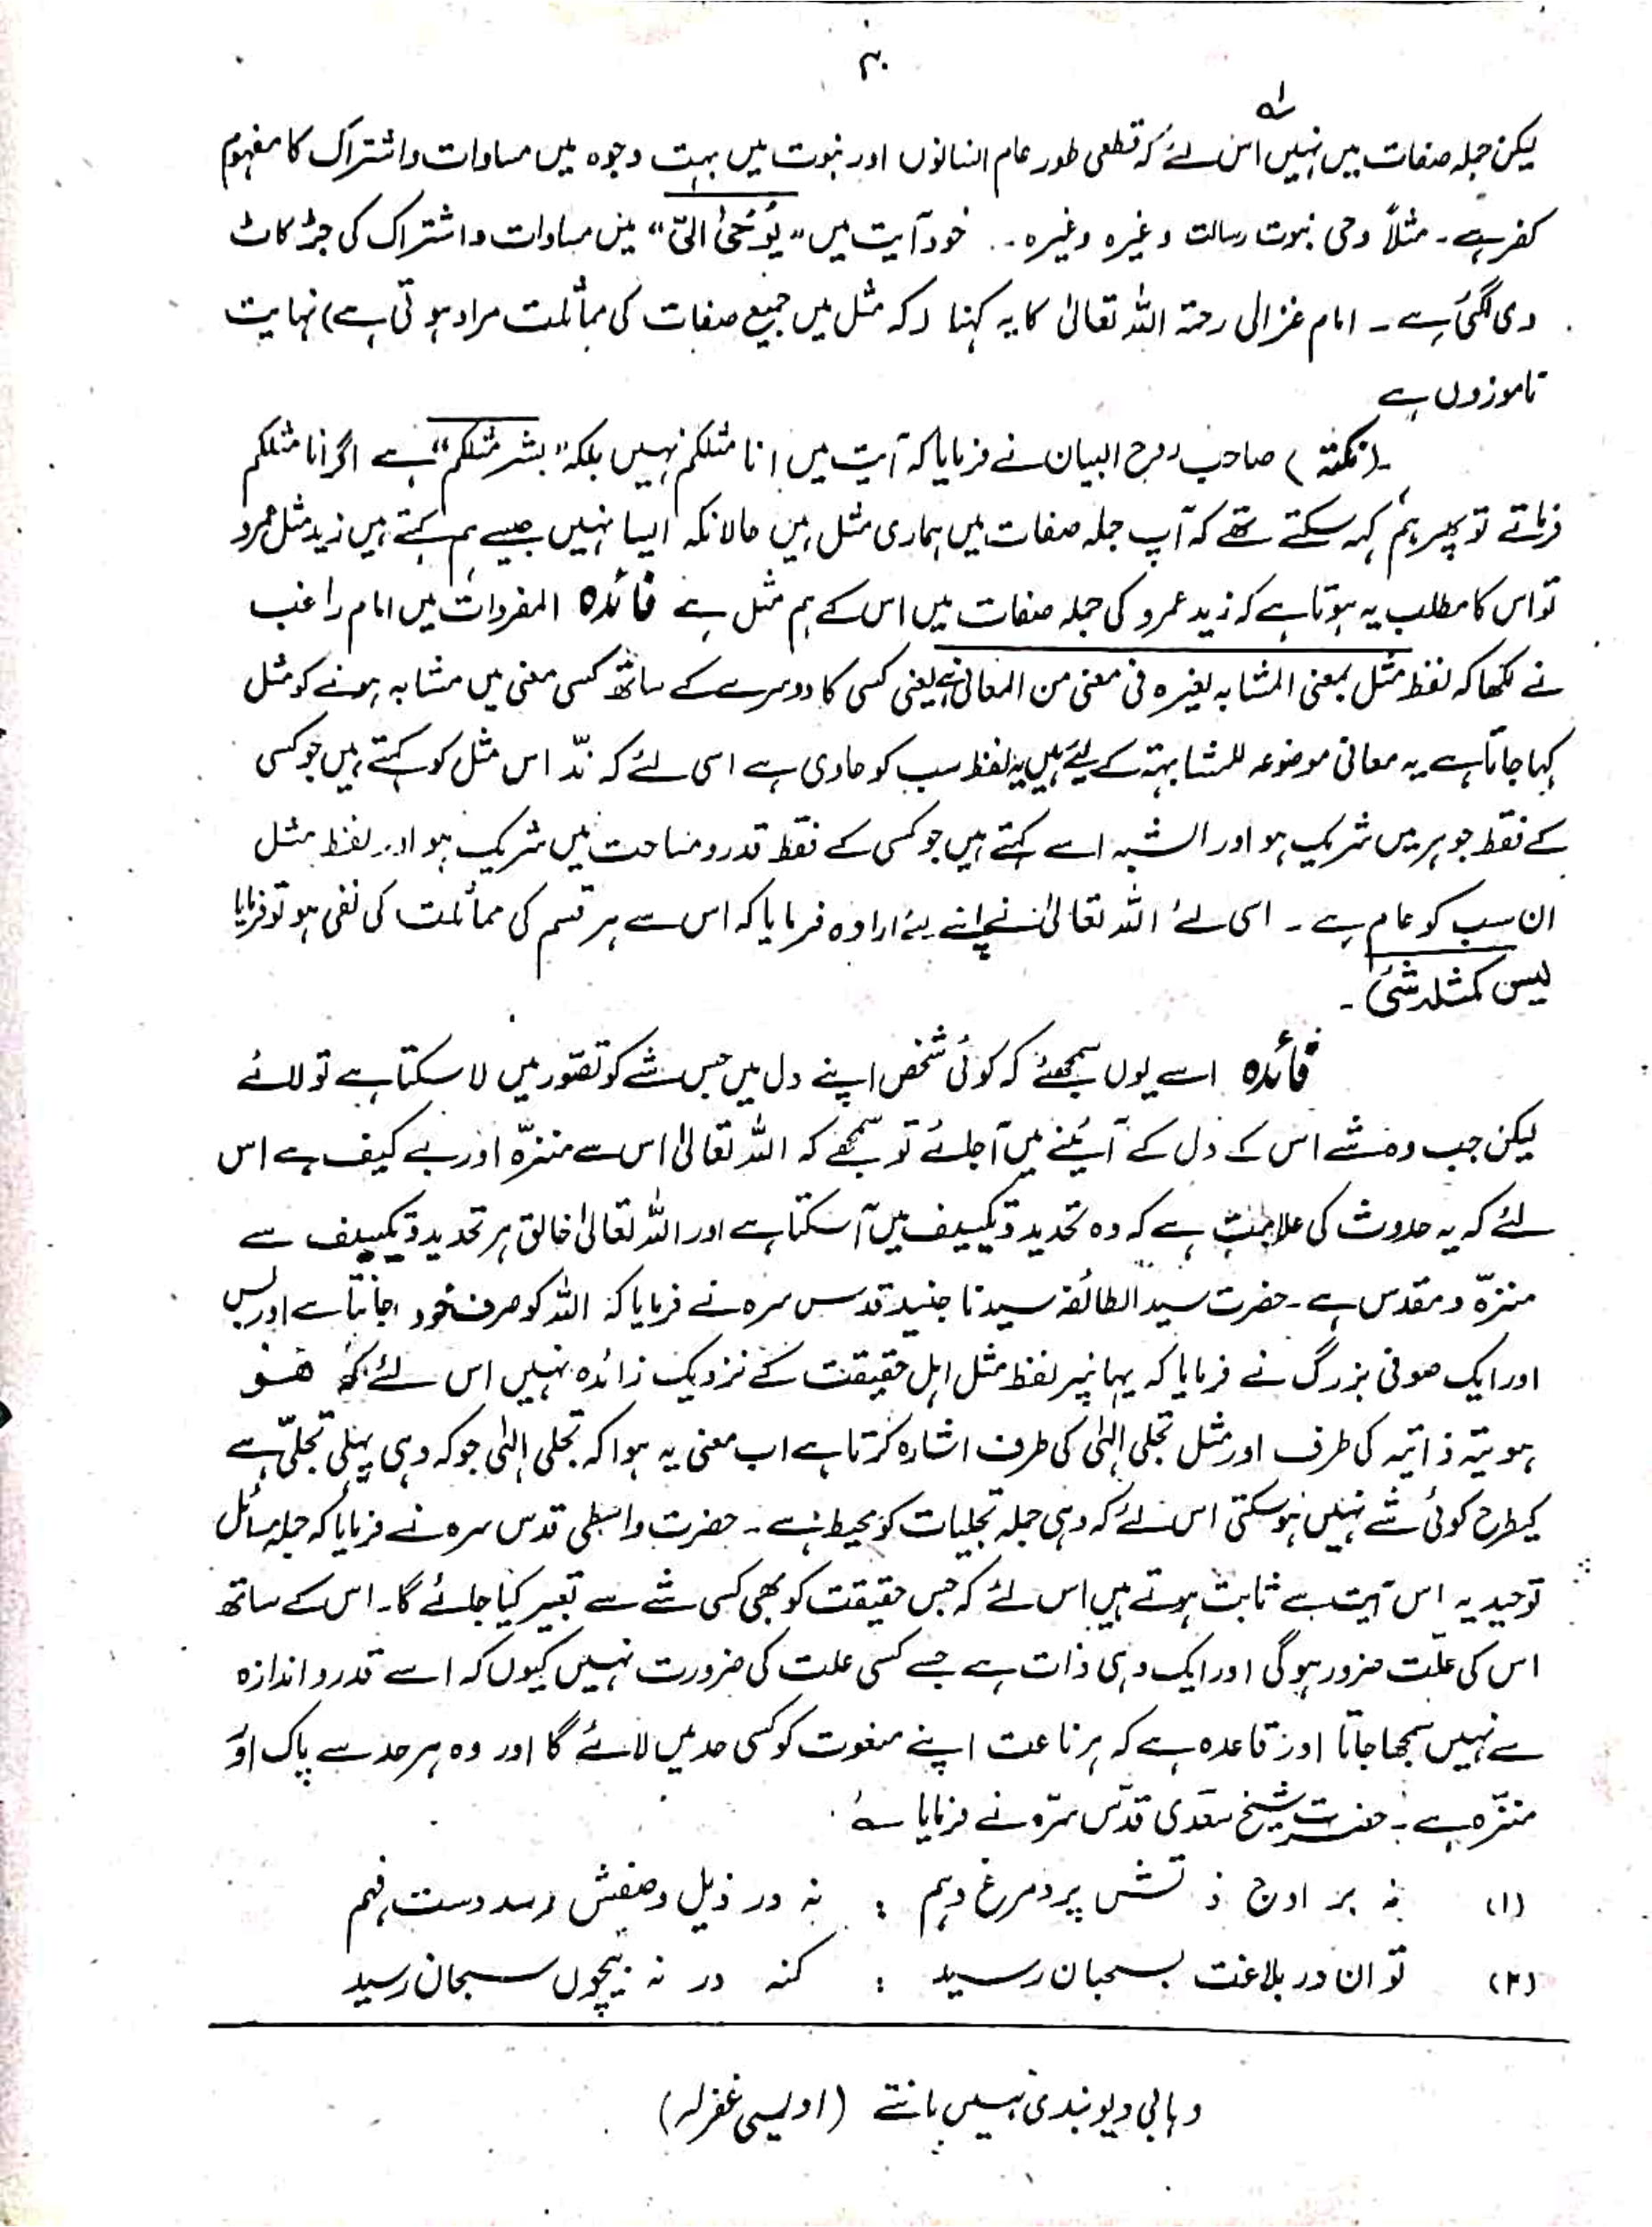 ۴۰
لیکن جملہ صفات میں نہیں اس لئے کہ قطعی طور عام انسانوں اور نبوت میں بہت وجوہ میں مساوات و اشتراک کا مفہوم
کفر ہے ۔ مثلاً وحی نبوت رسالت وغیرہ وغیرہ ۔ خود آیت میں "یُوحٰی الیّ" میں مساوات و اشتراک کی جڑ کاٹ
دی گئی ہے ۔ امام غزالی رحمۃ اللہ تعالیٰ کا یہ کہنا (کہ مثل میں جمیع صفات کی مماثلت مراد ہوتی ہے) نہایت
ناموزوں ہے
(نکتہ) صاحب روح البیان نے فرمایا کہ آیت میں انا مثلکم نہیں بلکہ "بشر مثلکم" ہے اگر انا مثلکم
فرماتے تو پھر ہم کہہ سکتے تھے کہ آپ جملہ صفات میں ہماری مثل ہیں حالانکہ ایسا نہیں جیسے ہم کہتے ہیں زید مثل عمرو
تو اس کا مطلب یہ ہوتا ہے کہ زید عمرو کی جملہ صفات میں اس کے ہم مثل ہے فائدہ المفردات میں امام راغب
نے لکھا کہ لفظ مثل بمعنی المشابہ بغیرہ فی معنی من المعانی ہے یعنی کسی کا دوسرے کے ساتھ کسی معنی میں مشابہ ہونے کو مثل
کہا جاتا ہے یہ معانی موضوعہ للمشابہۃ کے لئے ہیں یہ لفظ سب کو حاوی ہے اسی لئے کہ ندّ اس مثل کو کہتے ہیں جو کسی
کے فقط جوہر میں شریک ہو اور الشبہ اسے کہتے ہیں جو کسی کے فقط قدر و مساحت میں شریک ہو اور لفظ مثل
ان سب کو عام ہے ۔ اسی لئے اللہ تعالیٰ نے اپنے لئے ارادہ فرمایا کہ اس سے ہر قسم کی مماثلت کی نفی ہو تو فرمایا
لیس کمثلہ شئی ۔
فائدہ اسے یوں سمجھئے کہ کوئی شخص اپنے دل میں جس شے کو تصور میں لا سکتا ہے تو لائے
لیکن جب وہ شے اس کے دل کے آئینے میں آجائے تو سمجھے کہ اللہ تعالیٰ اس سے منزّہ اور بے کیف ہے اس
لئے کہ یہ حدوث کی علامت ہے کہ وہ تحدید و تکییف میں آسکتا ہے اور اللہ تعالیٰ خالق ہر تحدید و تکییف سے
منزّہ و مقدس ہے ۔ حضرت سید الطائفہ سیدنا جنید قدس سرہ نے فرمایا کہ اللہ کو صرف خود جانتا ہے اور بس
اور ایک صوفی بزرگ نے فرمایا کہ یہانپر لفظ مثل اہل حقیقت کے نزدیک زائدہ نہیں اس لئے کہ ھُو
ہویتہ ذاتیہ کی طرف اور مثل تجلی الٰہی کی طرف اشارہ کرتا ہے اب معنی یہ ہوا کہ تجلی الٰہی جو کہ وہی پہلی تجلّی ہے
کیطرح کوئی شے نہیں ہوسکتی اس لئے کہ وہی جملہ تجلیات کو محیط ہے ۔ حضرت واسطی قدس سرہ نے فرمایا کہ جملہ مسائل
توحیدیہ اس آیت سے ثابت ہوتے ہیں اس لئے کہ جس حقیقت کو بھی کسی شے سے تعبیر کیا جائے گا ۔ اس کے ساتھ
اس کی علّت ضرور ہوگی اور ایک وہی ذات ہے جسے کسی علت کی ضرورت نہیں کیوں کہ اسے قدر و اندازہ
سے نہیں سمجھا جاتا اور قاعدہ ہے کہ ہر ناعت اپنے منعوت کو کسی حد میں لائے گا اور وہ ہر حد سے پاک اور
منزّہ ہے ۔ حضرت شیخ سعدی قدّس سرّہ نے فرمایا ؎
(۱) نہ بر اوج ذاتش پرد مرغ وہم : نہ در ذیل وصفش رسد دست فہم
(۲) توان در بلاغت بسحبان رسید : کنہ در نہ بیچوں سبحان رسید
وہابی دیوبندی نہیں مانتے (اویسی غفرلہ)